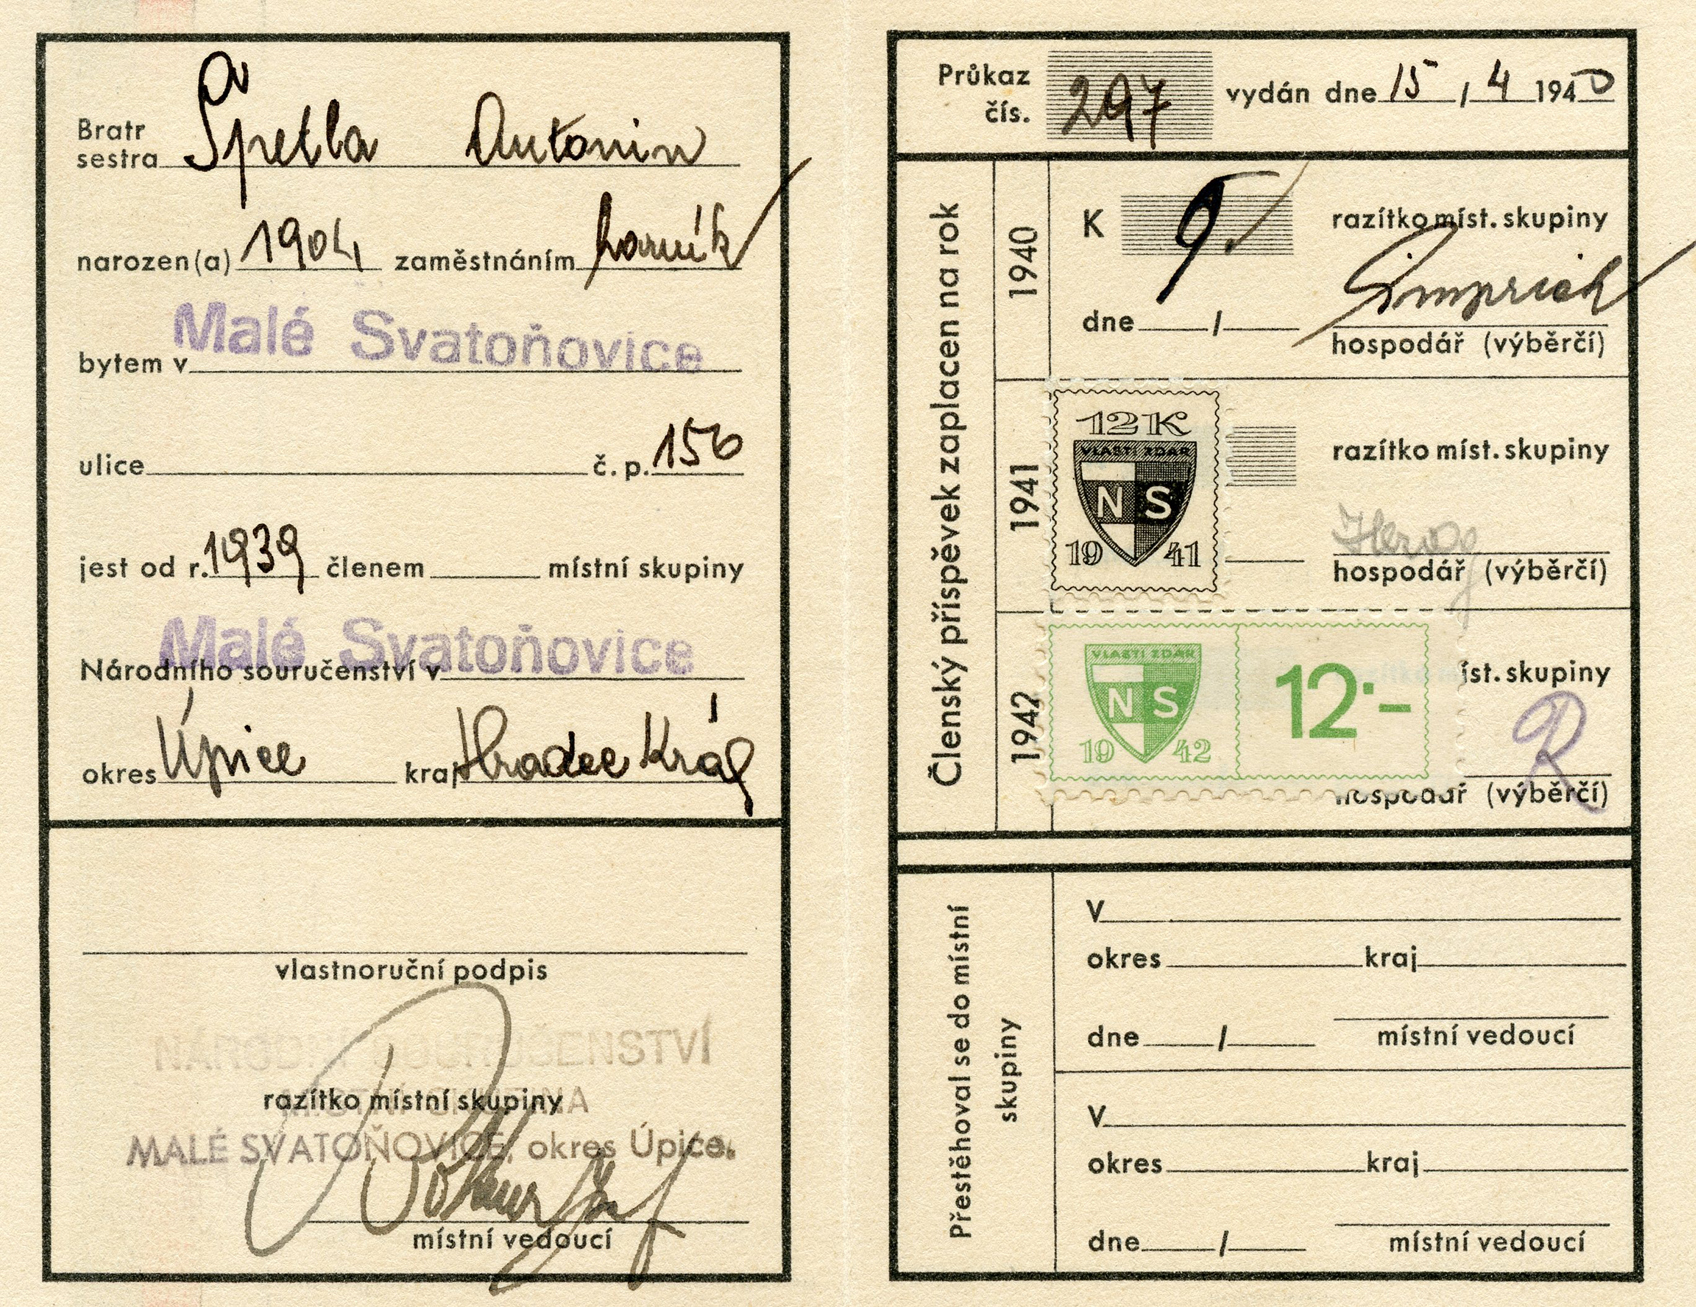 Bratr
sestra Špetla Antonin
narozen(a) 1904 zaměstnáním horník
bytem v Malé Svatoňovice
ulice č. p. 156
jest od r. 1939 členem místní skupiny
Malé Svatoňovice
Národního souručenství v
okres Úpice kraj Hradec Král
vlastnoruční podpis
NÁRODNÍ SOURUČENSTVÍ
MÍSTNÍ SKUPINA
razítko místní skupiny
MALÉ SVATOŇOVICE, okres Úpice.
místní vedoucí
Průkaz
čís. 297 vydán dne 15 / 4 1940
Členský příspěvek zaplacen na rok
1940
K 9
razítko míst. skupiny
dne /
hospodář (výběrčí)
1941
12 K
VLASTI ZDAR
NS
19 41
razítko míst. skupiny
hospodář (výběrčí)
1942
VLASTI ZDAR
NS
19 42
12·-
íst. skupiny
R
hospodář (výběrčí)
Přestěhoval se do místní
skupiny
V
okres kraj
dne /
místní vedoucí
V
okres kraj
dne /
místní vedoucí